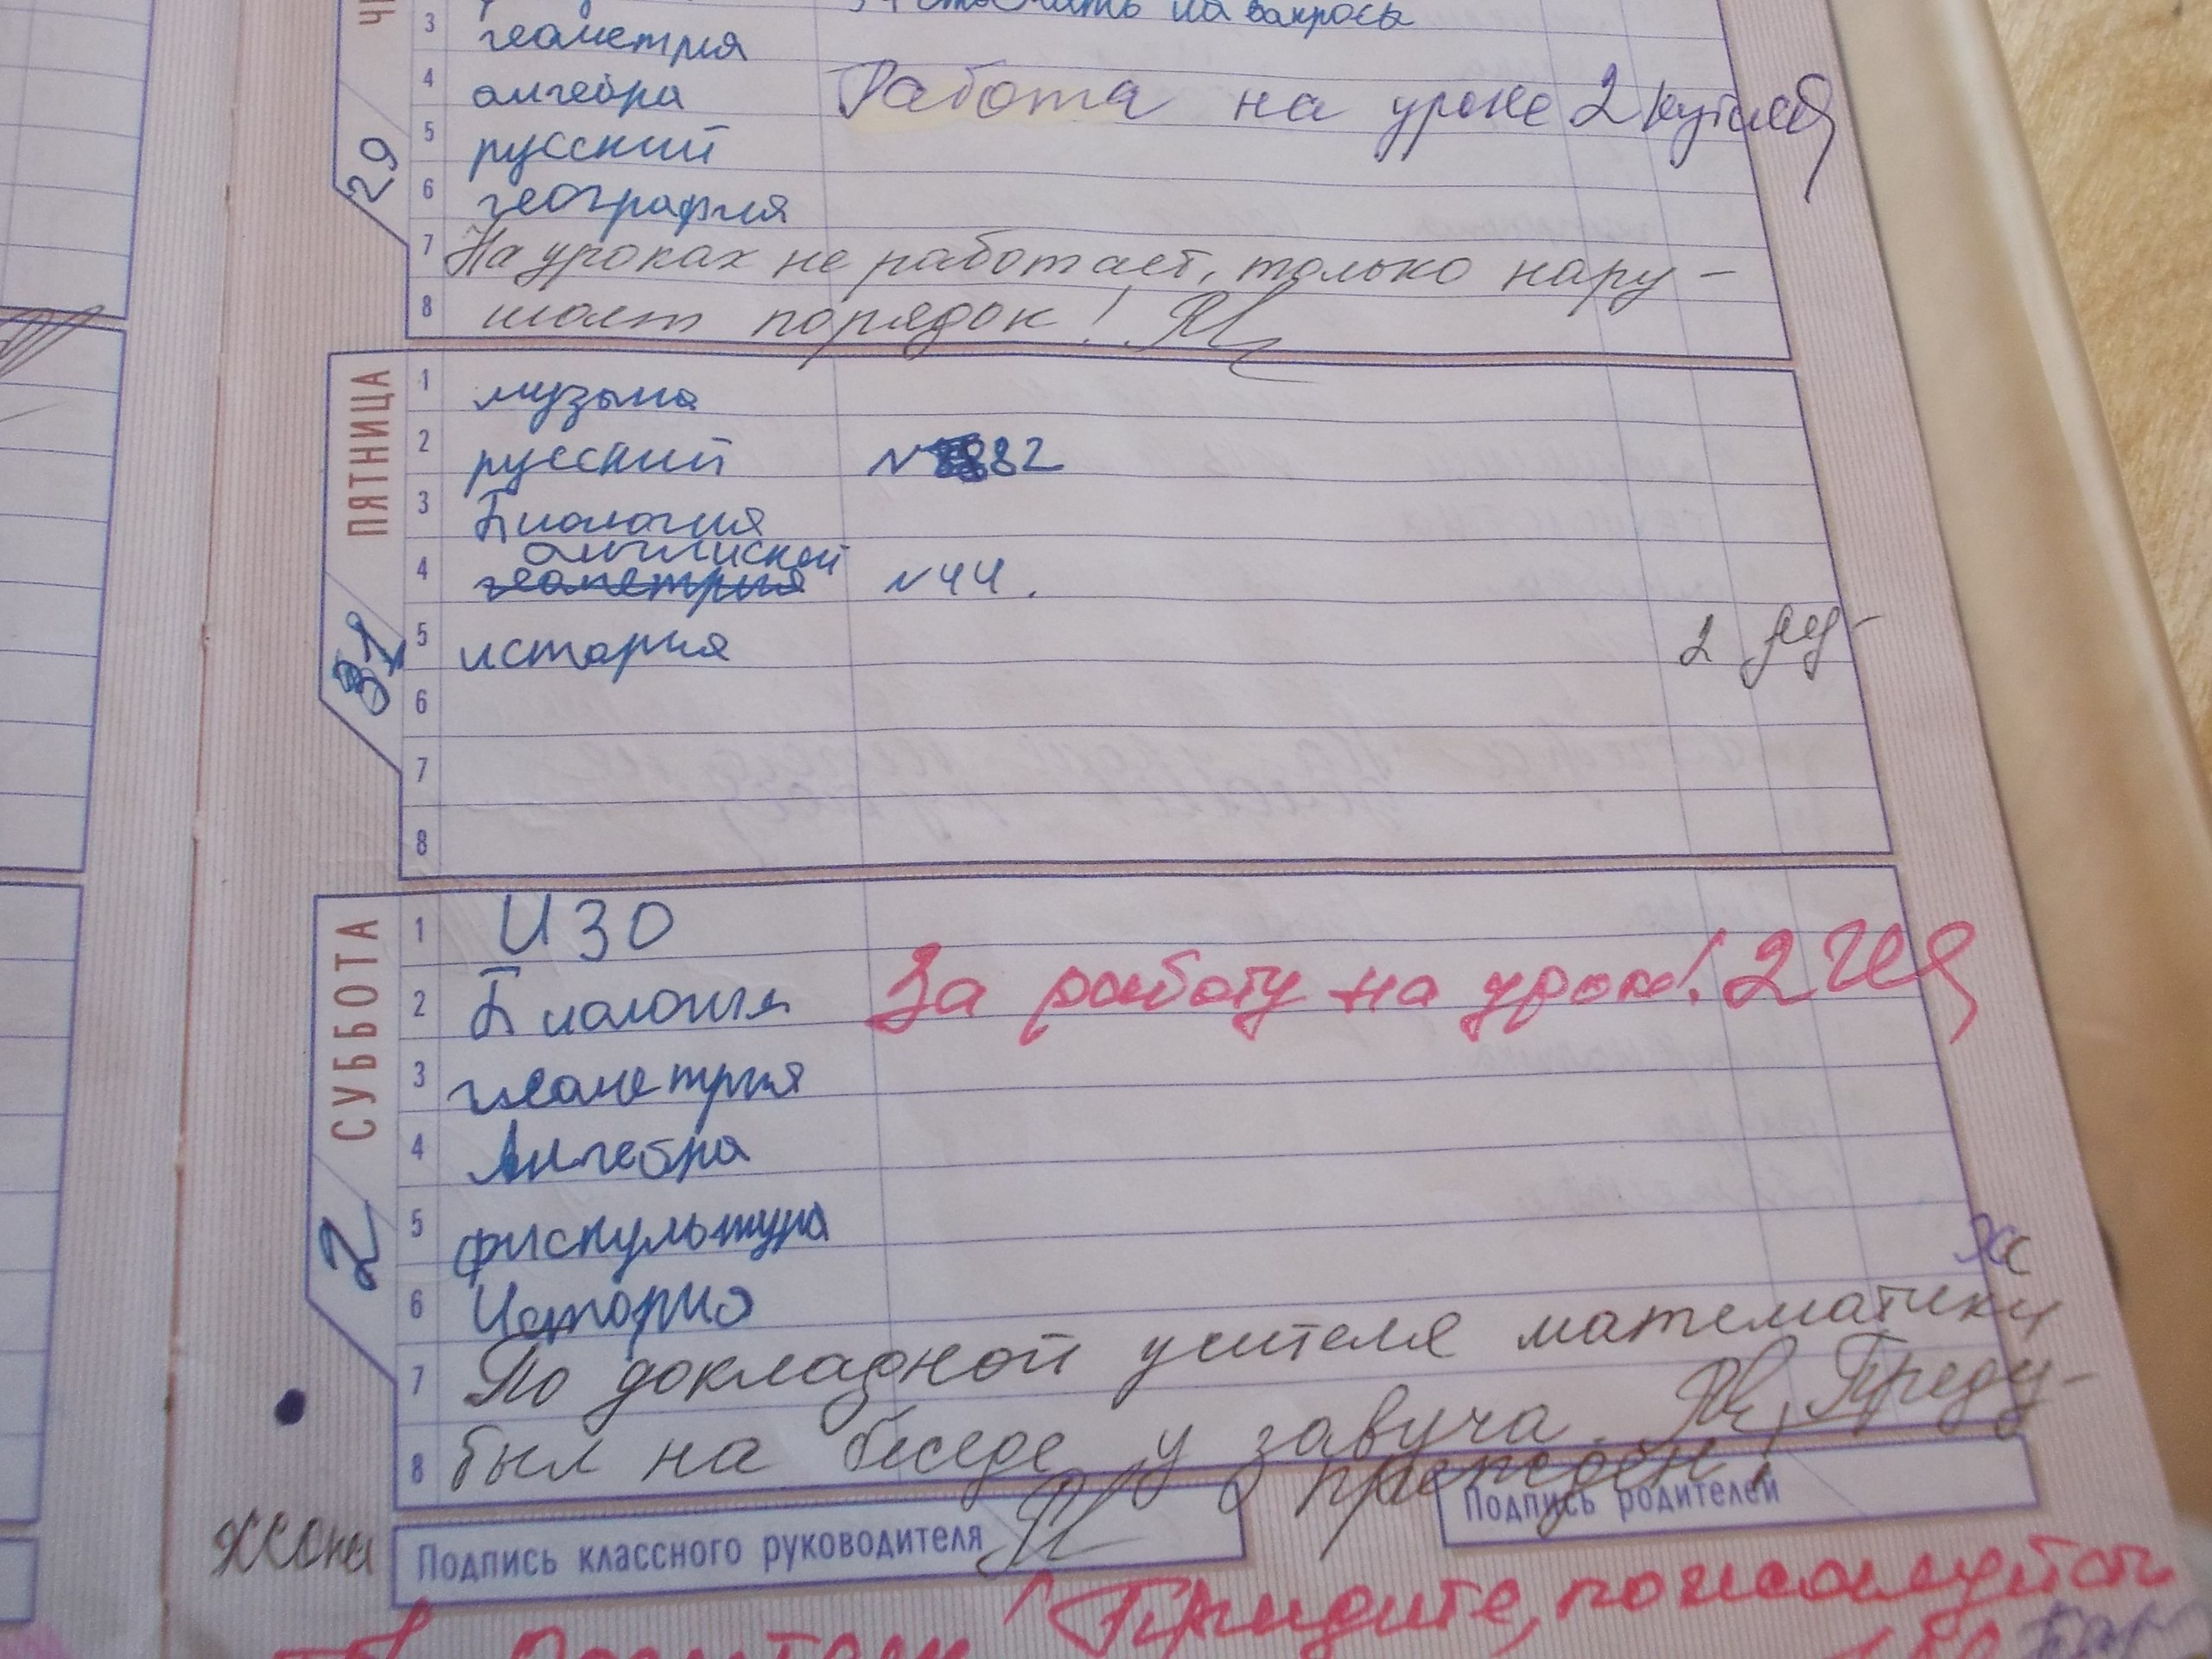 3 геометрия
на вапросы
4 алгебра Работа на уроке 2
5 русский
29
6 география
7 На уроках не работает, только нару-
8 шает порядок!
ПЯТНИЦА
1 музыка
2 русский N 82
3 Биология
английский
4 геометрия N 44.
5 история 2
31
6
7
8
СУББОТА
1 ИЗО
2 Биология За работу на уроке! 2
3 геометрия
4 Алгебра
5 фискультура
2
6 История
7 По докладной учителя математики
8 был на беседе у завуча. Преду-
прежден!
Подпись классного руководителя
Подпись родителей
Придите, пожалуйста